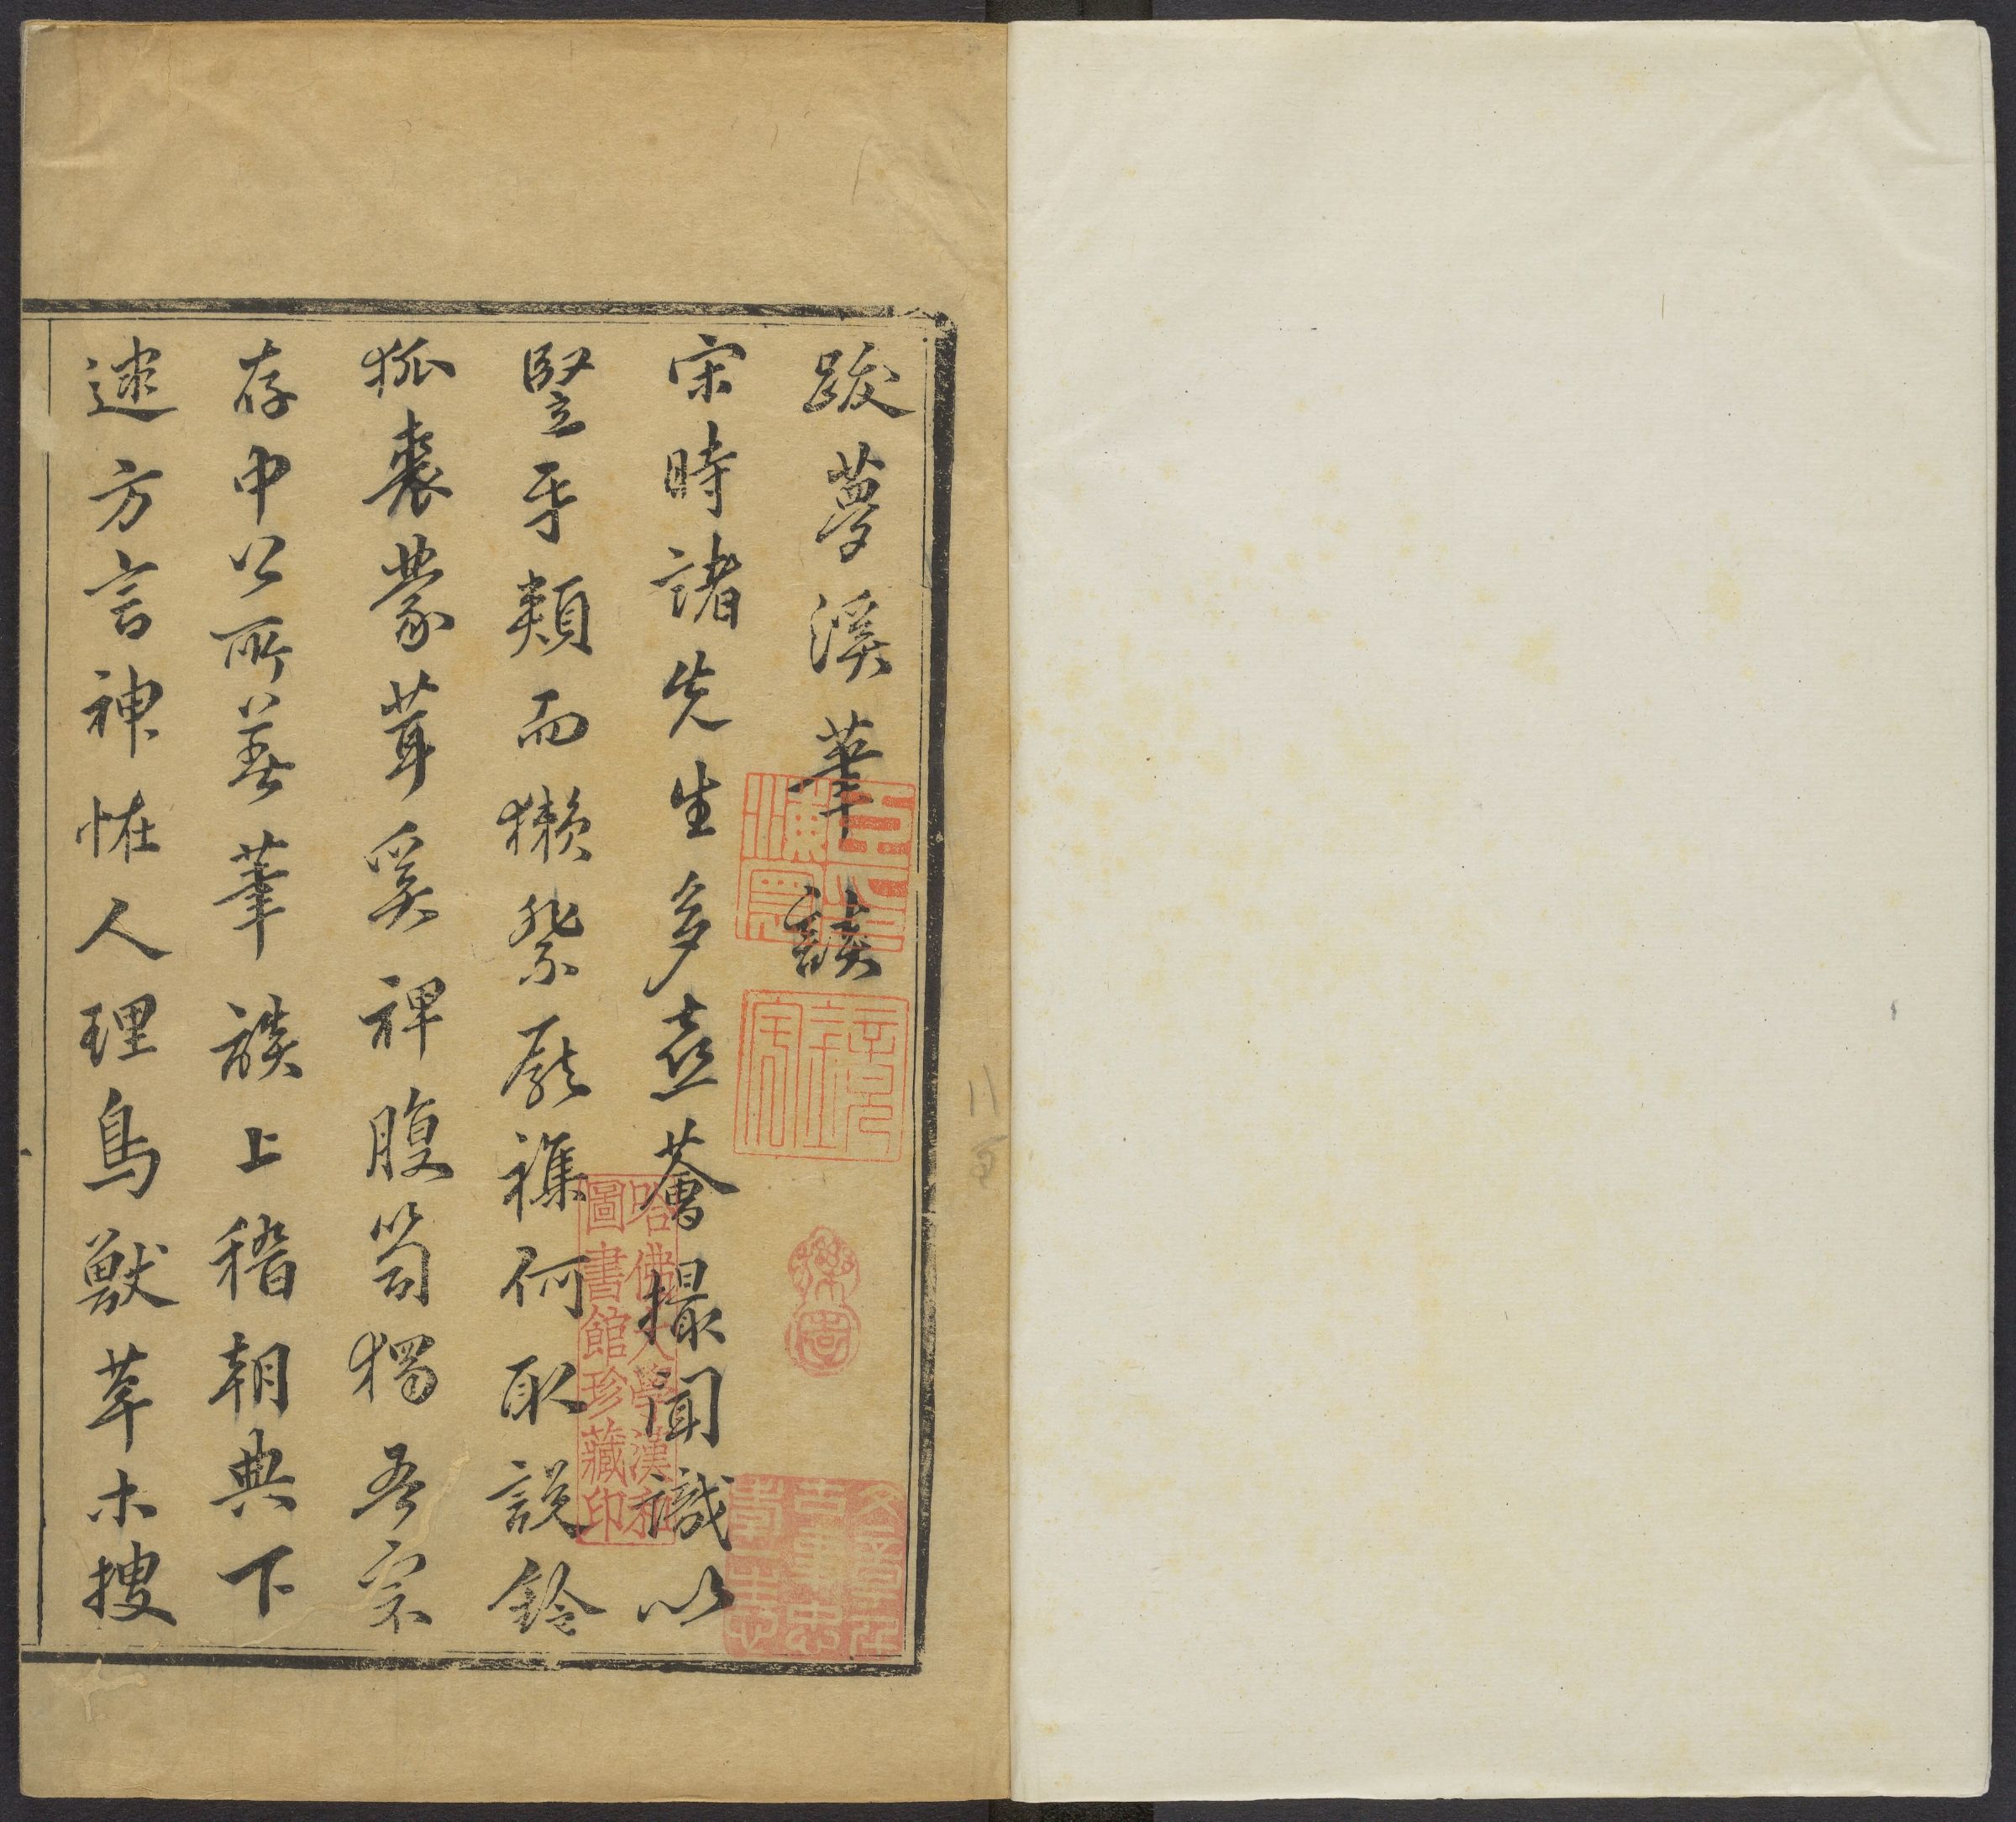 跋夢溪筆談
宋時諸先生多喜薈撮聞識以
豎牙頰而獺祭厖襍何取說鈴
狐裘蒙茸奚裨腹笥獨吾宗
存中公所著筆談上稽朝典下
逮方言神恠人理鳥獸草木搜
哈佛大學漢和
圖書館珍藏印